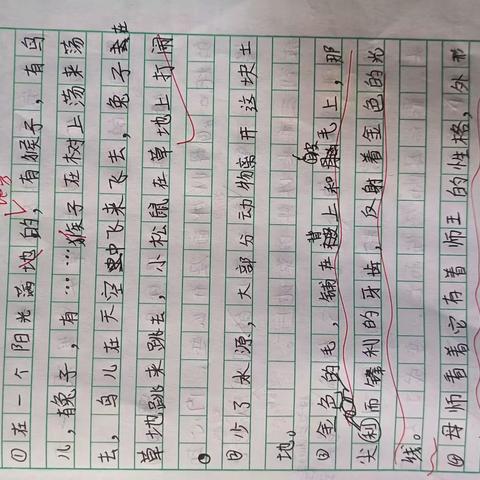 地方
①在一个阳光满地的,有猴子,有鸟
儿,有兔子,有……猴子在树上荡来荡
去,鸟儿在天空中飞来飞去,兔子在
草地跳来跳去,小松鼠在草地上打闹
。
②少了水源,大部分动物离开这块土
地。
③金色的毛,铺在背上和腿毛上,那
尖利而锋利的牙齿,反射着金色的光
线。
④母师看着它有着师王的性格,外形